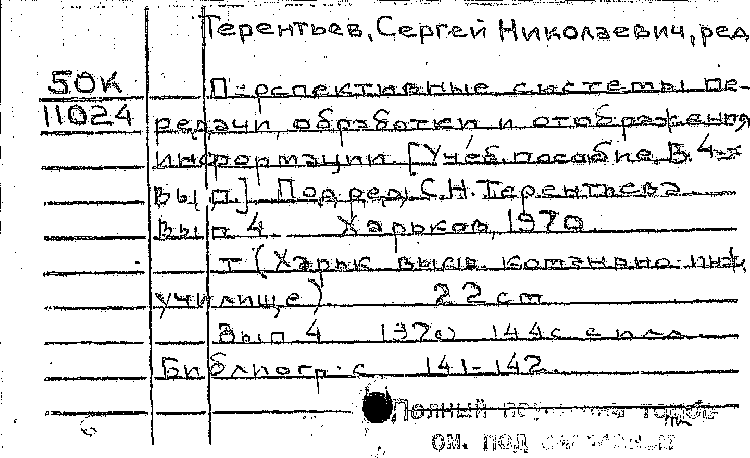 Терентьев, Сергей Николаевич, ред
50К
11024
Перспективные системы пе-
редачи, обработки и отображения
информации [Учеб. пособие. В 4-х
вып.] Под ред. С.Н. Терентьева
Вып 4 Харьков, 1970
т (Харьк высш. командно-инж,
училище) 22 cm
Вып 4 1970 144с с илл
Библиогр: с 141-142
Полный
см. под